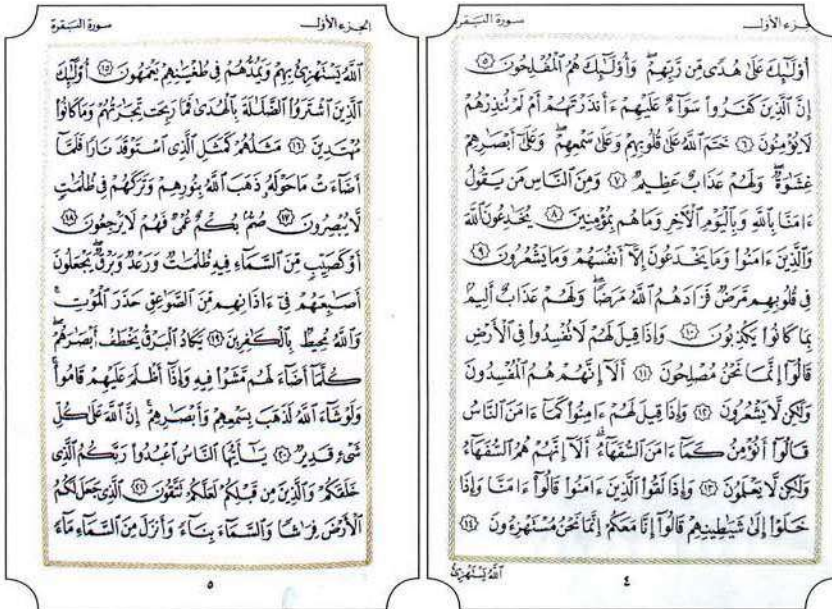 جزء الأول سورة البقرة
أُوْلَـٰٓئِكَ عَلَىٰ هُدًى مِّن رَّبِّهِمْۖ وَأُوْلَـٰٓئِكَ هُمُ ٱلْمُفْلِحُونَ ۝٥
إِنَّ ٱلَّذِينَ كَفَرُوا۟ سَوَآءٌ عَلَيْهِمْ ءَأَنذَرْتَهُمْ أَمْ لَمْ تُنذِرْهُمْ
لَا يُؤْمِنُونَ ۝٦ خَتَمَ ٱللَّهُ عَلَىٰ قُلُوبِهِمْ وَعَلَىٰ سَمْعِهِمْۖ وَعَلَىٰٓ أَبْصَـٰرِهِمْ
غِشَـٰوَةٌۖ وَلَهُمْ عَذَابٌ عَظِيمٌ ۝٧ وَمِنَ ٱلنَّاسِ مَن يَقُولُ
ءَامَنَّا بِٱللَّهِ وَبِٱلْيَوْمِ ٱلْـَٔاخِرِ وَمَا هُم بِمُؤْمِنِينَ ۝٨ يُخَـٰدِعُونَ ٱللَّهَ
وَٱلَّذِينَ ءَامَنُوا۟ وَمَا يَخْدَعُونَ إِلَّآ أَنفُسَهُمْ وَمَا يَشْعُرُونَ ۝٩
فِى قُلُوبِهِم مَّرَضٌ فَزَادَهُمُ ٱللَّهُ مَرَضًاۖ وَلَهُمْ عَذَابٌ أَلِيمٌۢ
بِمَا كَانُوا۟ يَكْذِبُونَ ۝١٠ وَإِذَا قِيلَ لَهُمْ لَا تُفْسِدُوا۟ فِى ٱلْأَرْضِ
قَالُوٓا۟ إِنَّمَا نَحْنُ مُصْلِحُونَ ۝١١ أَلَآ إِنَّهُمْ هُمُ ٱلْمُفْسِدُونَ
وَلَـٰكِن لَّا يَشْعُرُونَ ۝١٢ وَإِذَا قِيلَ لَهُمْ ءَامِنُوا۟ كَمَآ ءَامَنَ ٱلنَّاسُ
قَالُوٓا۟ أَنُؤْمِنُ كَمَآ ءَامَنَ ٱلسُّفَهَآءُۗ أَلَآ إِنَّهُمْ هُمُ ٱلسُّفَهَآءُ
وَلَـٰكِن لَّا يَعْلَمُونَ ۝١٣ وَإِذَا لَقُوا۟ ٱلَّذِينَ ءَامَنُوا۟ قَالُوٓا۟ ءَامَنَّا وَإِذَا
خَلَوْا۟ إِلَىٰ شَيَـٰطِينِهِمْ قَالُوٓا۟ إِنَّا مَعَكُمْ إِنَّمَا نَحْنُ مُسْتَهْزِءُونَ ۝١٤
ٱللَّهُ يَسْتَهْزِئُ
٤
الجزء الأول سورة البقرة
ٱللَّهُ يَسْتَهْزِئُ بِهِمْ وَيَمُدُّهُمْ فِى طُغْيَـٰنِهِمْ يَعْمَهُونَ ۝١٥ أُوْلَـٰٓئِكَ
ٱلَّذِينَ ٱشْتَرَوُا۟ ٱلضَّلَـٰلَةَ بِٱلْهُدَىٰ فَمَا رَبِحَت تِّجَـٰرَتُهُمْ وَمَا كَانُوا۟
مُهْتَدِينَ ۝١٦ مَثَلُهُمْ كَمَثَلِ ٱلَّذِى ٱسْتَوْقَدَ نَارًا فَلَمَّآ
أَضَآءَتْ مَا حَوْلَهُۥ ذَهَبَ ٱللَّهُ بِنُورِهِمْ وَتَرَكَهُمْ فِى ظُلُمَـٰتٍ
لَّا يُبْصِرُونَ ۝١٧ صُمٌّۢ بُكْمٌ عُمْىٌ فَهُمْ لَا يَرْجِعُونَ ۝١٨
أَوْ كَصَيِّبٍ مِّنَ ٱلسَّمَآءِ فِيهِ ظُلُمَـٰتٌ وَرَعْدٌ وَبَرْقٌ يَجْعَلُونَ
أَصَـٰبِعَهُمْ فِىٓ ءَاذَانِهِم مِّنَ ٱلصَّوَٰعِقِ حَذَرَ ٱلْمَوْتِۚ
وَٱللَّهُ مُحِيطٌۢ بِٱلْكَـٰفِرِينَ ۝١٩ يَكَادُ ٱلْبَرْقُ يَخْطَفُ أَبْصَـٰرَهُمْۖ
كُلَّمَآ أَضَآءَ لَهُم مَّشَوْا۟ فِيهِ وَإِذَآ أَظْلَمَ عَلَيْهِمْ قَامُوا۟ۚ
وَلَوْ شَآءَ ٱللَّهُ لَذَهَبَ بِسَمْعِهِمْ وَأَبْصَـٰرِهِمْۚ إِنَّ ٱللَّهَ عَلَىٰ كُلِّ
شَىْءٍ قَدِيرٌ ۝٢٠ يَـٰٓأَيُّهَا ٱلنَّاسُ ٱعْبُدُوا۟ رَبَّكُمُ ٱلَّذِى
خَلَقَكُمْ وَٱلَّذِينَ مِن قَبْلِكُمْ لَعَلَّكُمْ تَتَّقُونَ ۝٢١ ٱلَّذِى جَعَلَ لَكُمُ
ٱلْأَرْضَ فِرَٰشًا وَٱلسَّمَآءَ بِنَآءً وَأَنزَلَ مِنَ ٱلسَّمَآءِ مَآءً
٥